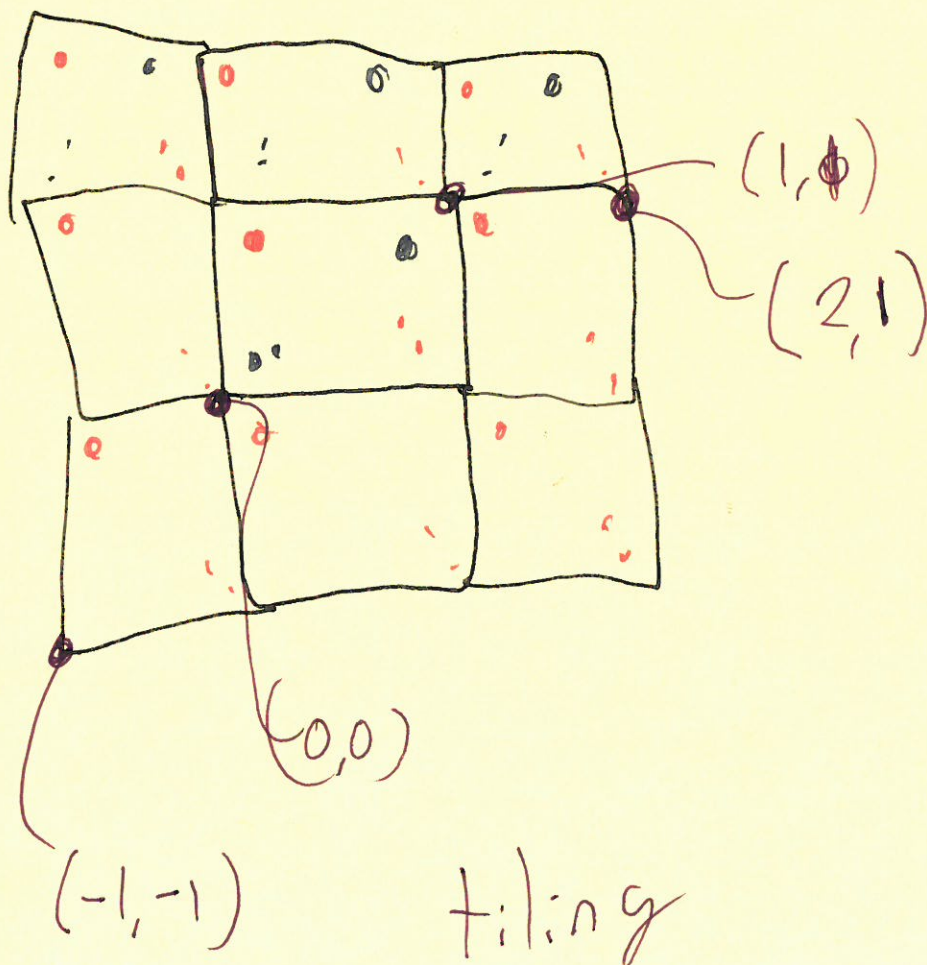 (1,1)
(2,1)
(0,0)
(-1,-1)
tiling